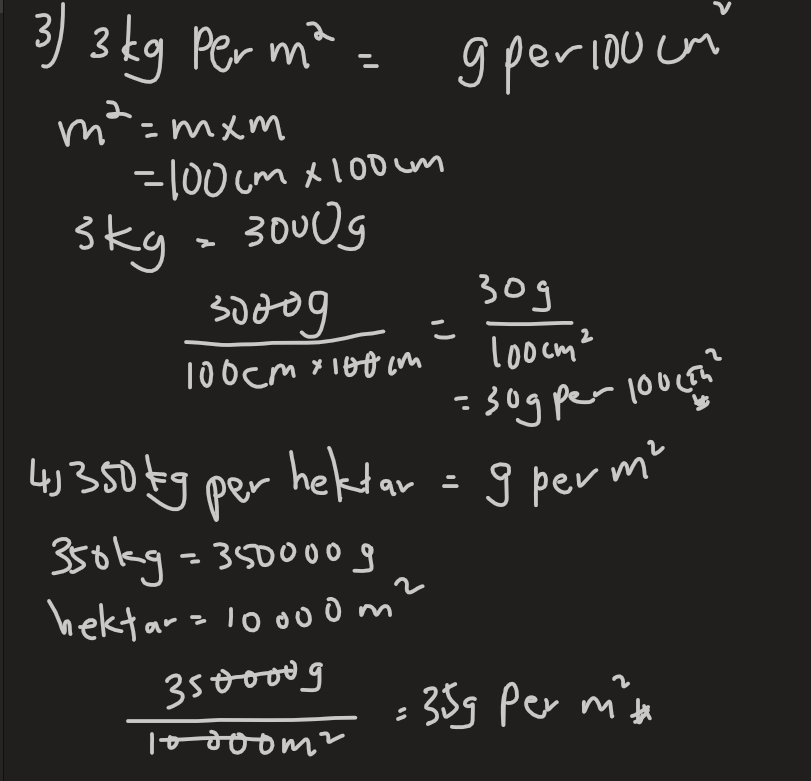 3) 3 kg Per m² = g per 100 cm²
m² = m × m
= 100 cm × 100 cm
3kg = 3000g
3000g / 100cm × 100cm = 30g / 100cm²
= 30g per 100cm²
4) 350kg per hektar = g per m²
350kg = 350000 g
hektar = 10 000 m²
350000g / 10 000m² = 35g Per m²